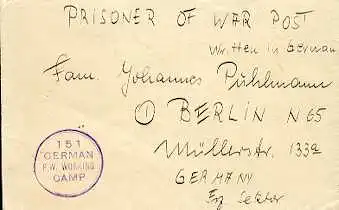 PRISONER OF WAR POST
Written in German
Fam. Johannes Pühlmann
① BERLIN N 65
Müllerstr. 133a
GERMANY
Eng. Sektor
151
GERMAN
P.W. WORKING
CAMP